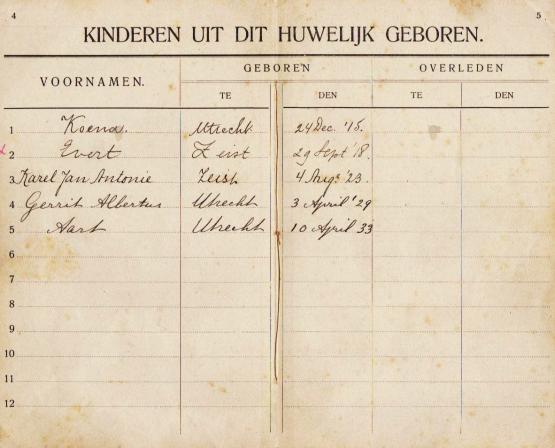 4 5
KINDEREN UIT DIT HUWELIJK GEBOREN.
VOORNAMEN. GEBOREN OVERLEDEN
TE DEN TE DEN
1 Koena. Utrecht 24 Dec. '15.
2 Evert Zeist 29 Sept '18.
3 Karel Jan Antonie Zeist 4 Aug: '23.
4 Gerrit Albertus Utrecht 3 April '29
5 Aart Utrecht 10 April 33
6
7
8
9
10
11
12